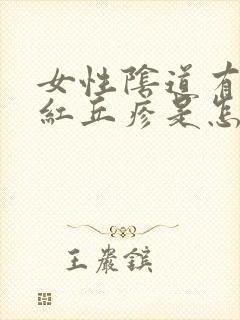 女性陰道有
紅丘疹是怎
王巖鎮